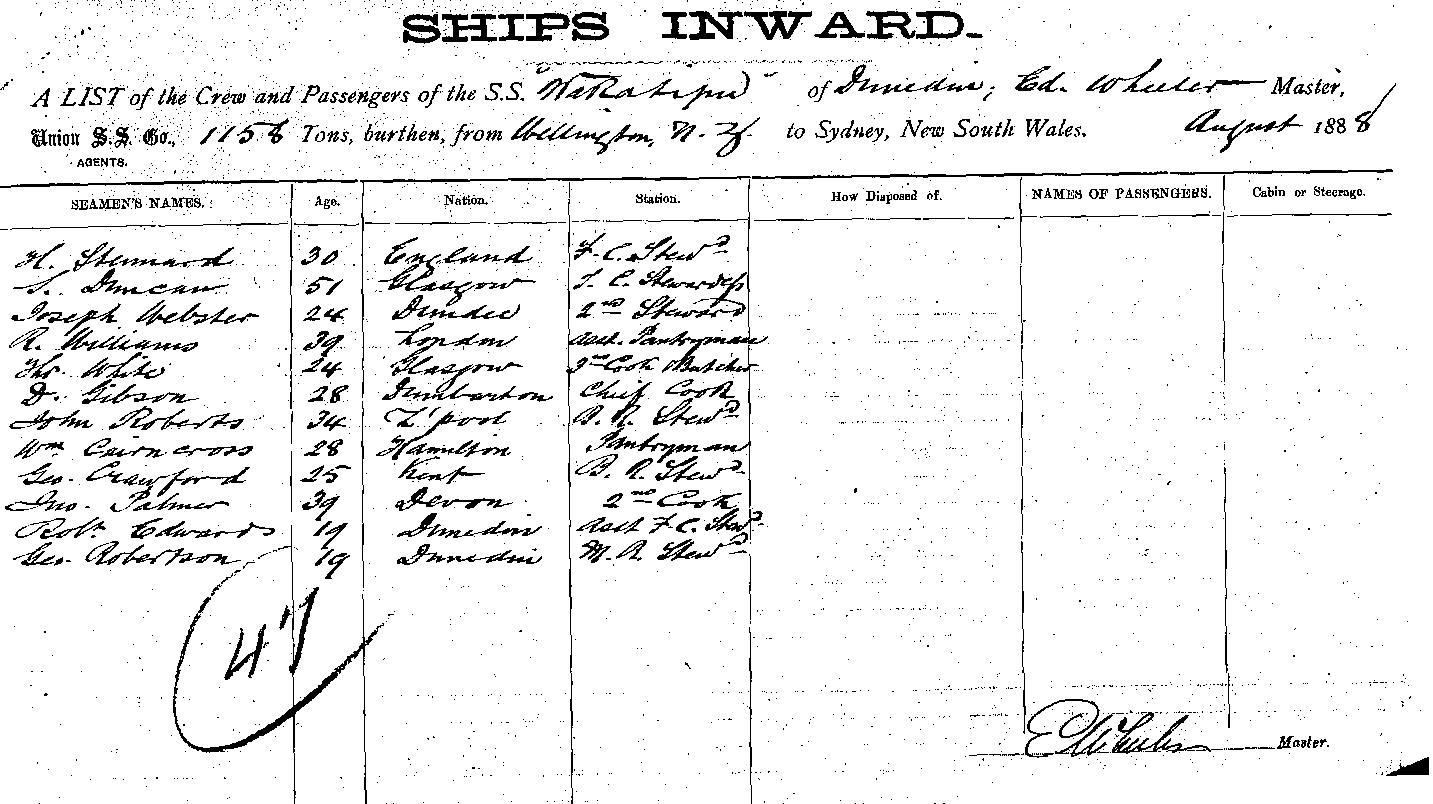 SHIPS INWARD.
A LIST of the Crew and Passengers of the S.S. "Wakatipu" of Dunedin, Ed. Wheeler Master,
Union S.S. Co., 1158 Tons, burthen, from Wellington, N.Z. to Sydney, New South Wales. August 1888
AGENTS.
SEAMEN'S NAMES. Age. Nation. Station. How Disposed of. NAMES OF PASSENGERS. Cabin or Steerage.
H. Stennard 30 England F. C. Stewd
S. Duncan 51 Glasgow F. C. Stewardess
Joseph Webster 24 Dundee 2nd Steward
R. Williams 39 London asst. Pantryman
Thos White 24 Glasgow 3rd Cook & Butcher
D. Gibson 28 Dumbarton Chief Cook
John Roberts 34 L'pool B. R. Stewd
Wm Cairncross 28 Hamilton Pantryman
Geo. Crawford 25 Kent B. R. Stewd
Jno. Palmer 39 Devon 2nd Cook
Robt Edwards 19 Dunedin asst F. C. Stewd
Geo. Robertson 19 Dunedin M. R. Stewd
47
E Wheeler Master.